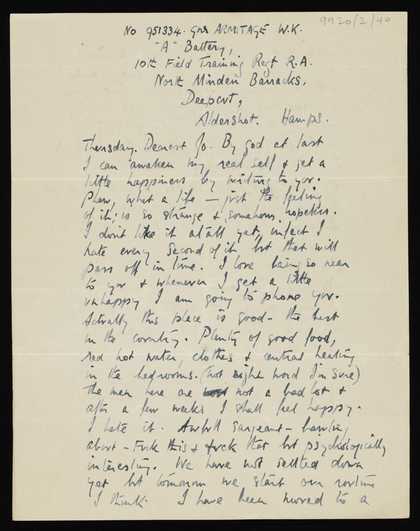 9920/2/40
No 951334. Gnr ARMITAGE W.K.
"A" Battery,
10th Field Training Regt R.A.
North Minden Barracks,
Deepcut,
Aldershot. Hamps.
Thursday. Dearest Jo. By God at last
I can awaken my real self & get a
little happiness by writing to you.
Phew, what a life — just the feeling
of it is so strange & somehow, hopeless.
I don't like it at all yet, infact I
hate every second of it but that will
pass off in time. I love being so near
to you & whenever I get a little
unhappy I am going to phone you.
Actually this place is good - the best
in the country. Plenty of good food,
red hot water, clothes & central heating
in the bedrooms. (not right word I'm sure)
the men here are not a bad lot &
after a few weeks I shall feel happy.
I hate it. Awful sargeant - bawling
about - Fuck this & fuck that but psychologically
interesting. We have not settled down
yet but tomorrow we start our routine
I think. I have been moved to a